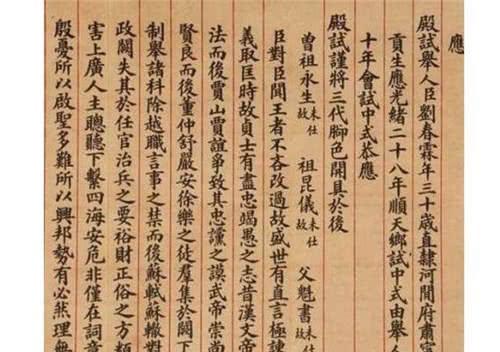 應
殿試舉人臣劉春霖年三十歲直隸河間府肅
貢生應光緒二十八年順天鄉試中式由舉人
十年會試中式恭應
殿試謹將三代腳色開具於後
曾祖永生未仕故 祖昆儀未仕故 父魁書未仕
臣對臣聞王者不吝改過故盛世有直言極諫
義取匡時故貞士有盡忠竭愚之志昔漢文帝
法而後賈山賈誼爭致其忠讜之謨武帝崇尚
賢良而後董仲舒嚴安徐樂之徒羣集於闕下
制舉諸科除越職言事之禁而後蘇軾蘇轍對
政闕失其於任官治兵之要裕財正俗之方類
害上廣人主聰聽下繫四海安危非僅在詞章
殷憂所以啟聖多難所以興邦勢有必然理無